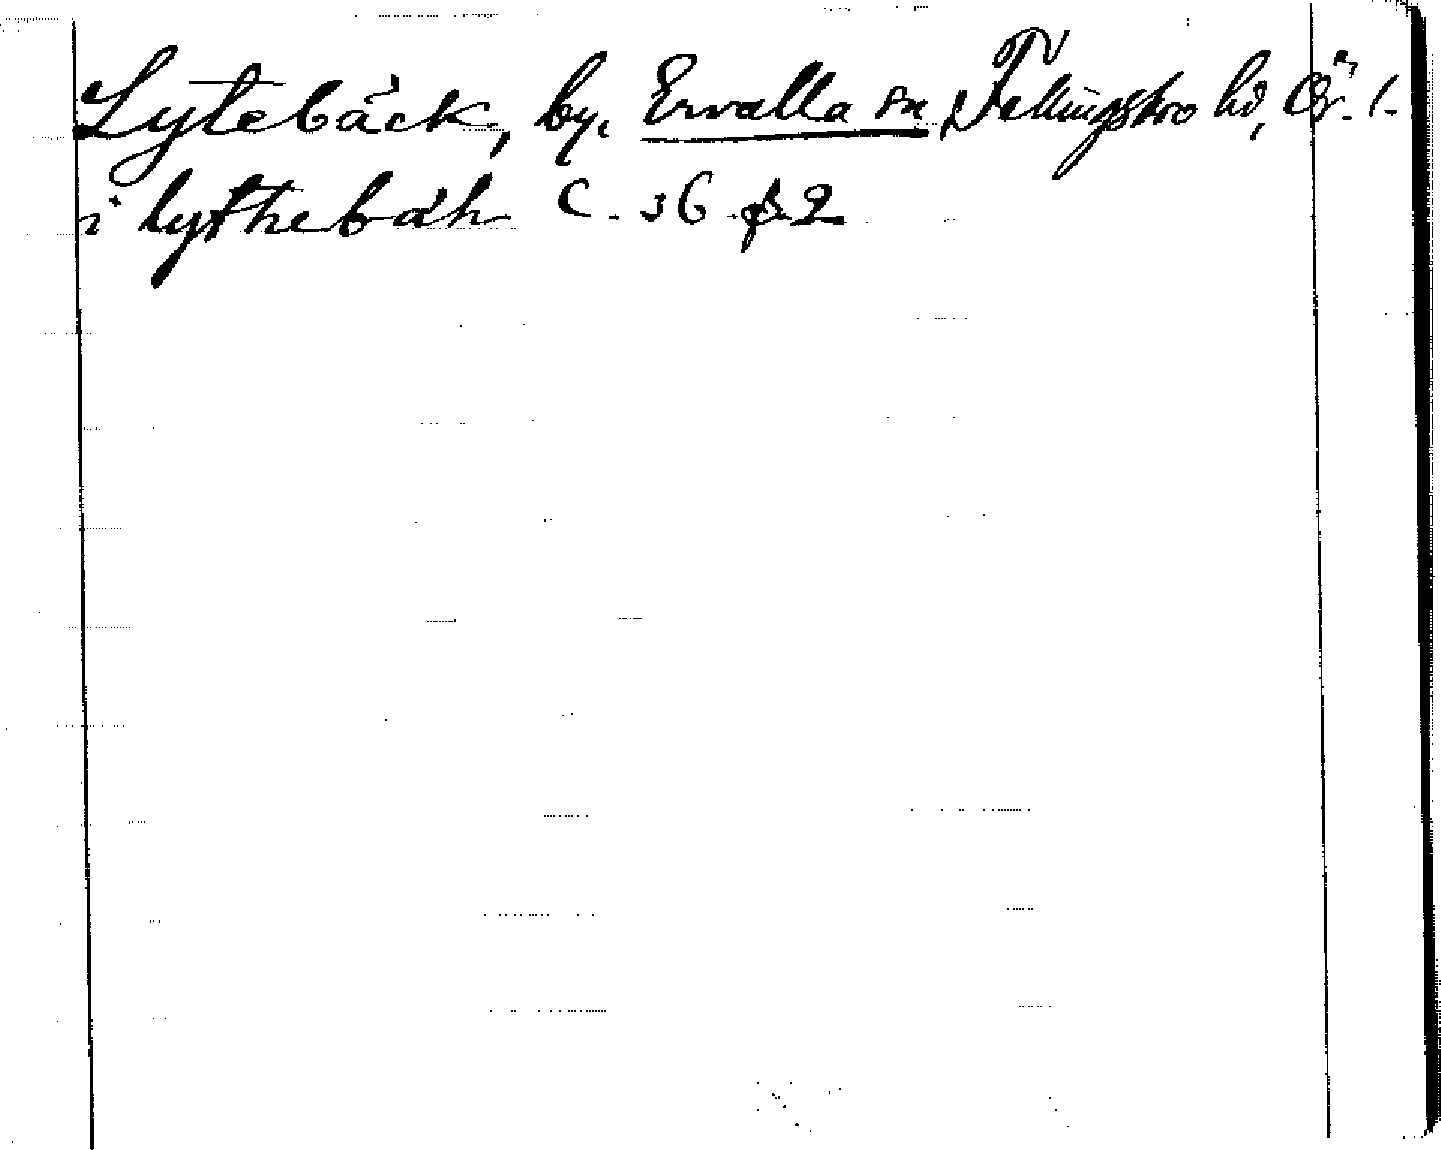 Lytebäck, by. Ervalla sn Fellingsbro hd, Ör. l.
i lythebäk C. 36 f 2